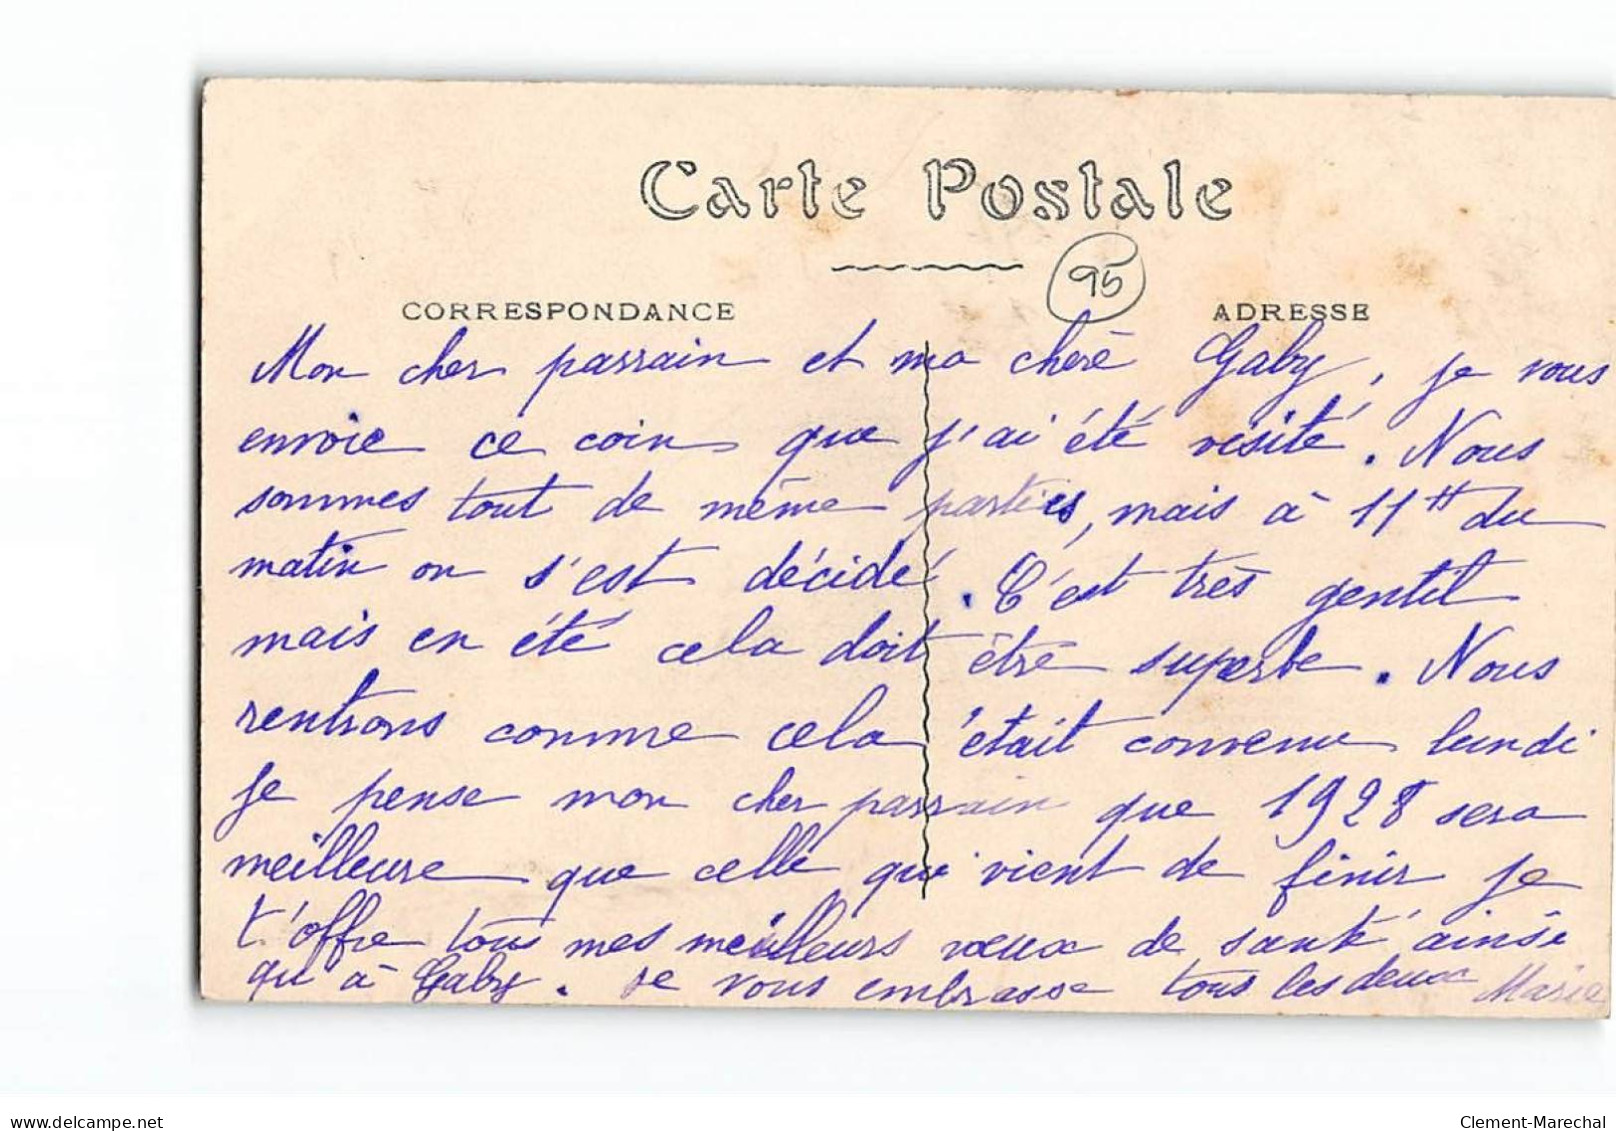 Carte Postale
95
CORRESPONDANCE
ADRESSE
Mon cher parrain et ma chère Gaby, je vous
envoie ce coin que j'ai été visité. Nous
sommes tout de même parties, mais à 11H du
matin on s'est décidé. C'est très gentil
mais en été cela doit être superbe. Nous
rentrons comme cela était convenu lundi
je pense mon cher parrain que 1928 sera
meilleure que celle qui vient de finir je
t'offre tous mes meilleurs vœux de santé ainsi
qu'à Gaby. Je vous embrasse tous les deux Marie
delcampe.net
Clement-Marechal